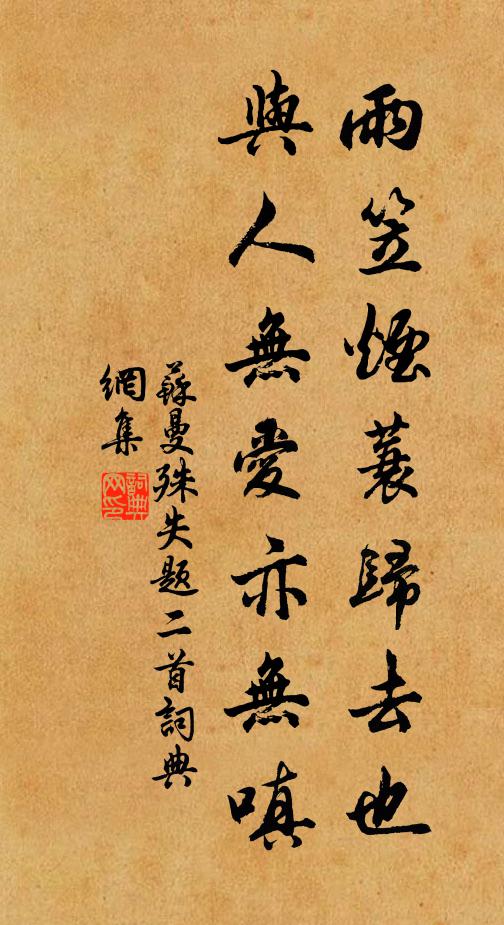 雨笠煙蓑歸去也
與人無愛亦無嗔
蘇曼殊失題二首詞典
網集
詞典
网印